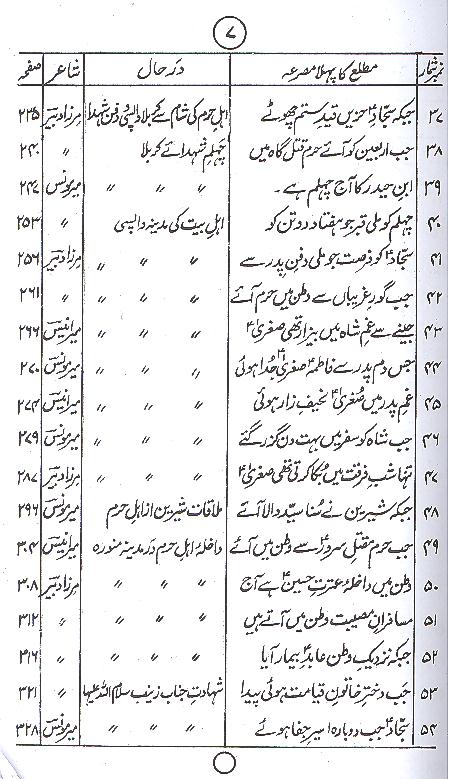 ۷
نمبر شمار مطلع کا پہلا مصرعہ در حال شاعر صفحہ
۳۷ جبکہ سجادؑ حزیں قید ستم چھوٹے اہل حرم کی شام سے کربلا واپسی دفن شہدا مرزا دبیر ۲۳۵
۳۸ جب اربعین کو آئے حرم قتل گاہ میں چہلم شہدائے کربلا 〃 ۲۴۰
۳۹ ابن حیدر کا آج چہلم ہے۔ 〃 〃 〃 میر مونس ۲۴۷
۴۰ چہلم کو ملی قبر جو ہفتاد و دو تن کو اہل بیت کی مدینہ واپسی 〃 ۲۵۳
۴۱ سجادؑ کو فرصت جو ملی دفن پدر سے 〃 〃 〃 مرزا دبیر ۲۵۶
۴۲ جب گور غریباں سے وطن میں حرم آئے 〃 〃 〃 〃 ۲۶۱
۴۳ جینے سے غم شاہ میں بیزار تھی صغریٰؑ 〃 〃 〃 میر انیس ۲۶۶
۴۴ جس دم پدر سے فاطمہؑ صغریٰؑ جدا ہوئی 〃 〃 〃 میر مونس ۲۷۰
۴۵ غم پدر میں صغریٰؑ نحیف زار ہوئی 〃 〃 〃 میر انیس ۲۷۴
۴۶ جب شاہ کو سفر میں بہت دن گزر گئے 〃 〃 〃 میر مونس ۲۷۹
۴۷ تنہا شب فرقت میں بکا کرتی تھی صغریٰؑ 〃 〃 〃 مرزا دبیر ۲۸۷
۴۸ جبکہ شیریں نے سنا سید والا آئے ملاقات شیریں از اہل حرم میر مونس ۲۹۶
۴۹ جب حرم مقتل سرورؑ سے وطن میں آئے داخلۂ اہل حرم در مدینہ منورہ میر انیس ۳۰۴
۵۰ وطن میں داخلۂ عترت حسینؑ ہے آج 〃 〃 〃 مرزا دبیر ۳۰۸
۵۱ مسافران مصیبت وطن میں آتے ہیں 〃 〃 〃 〃 ۳۱۲
۵۲ جبکہ نزدیک وطن عابدؑ بیمار آیا 〃 〃 〃 〃 ۳۱۶
۵۳ جب دختر خاتون قیامت ہوئی پیدا شہادت جناب زینب سلام اللہ علیہا 〃 ۳۲۱
۵۴ سجادؑ جب دوبارہ اسیر جفا ہوئے 〃 〃 〃 میر مونس ۳۲۸